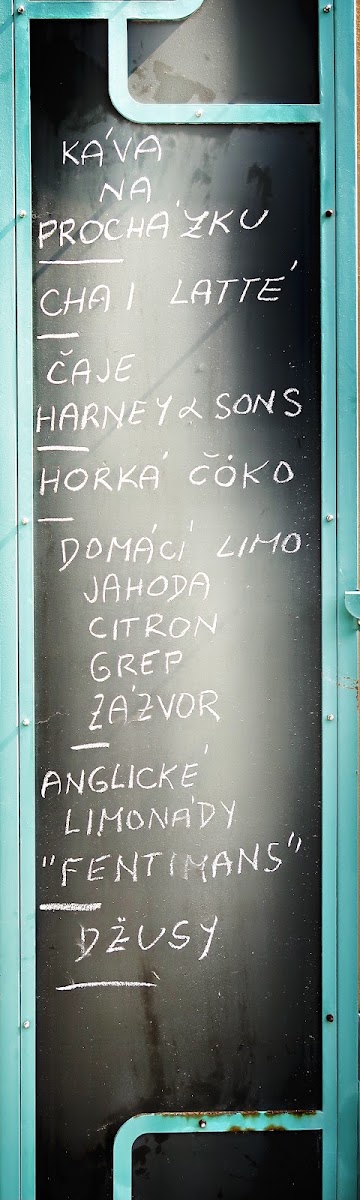 KÁVA
NA
PROCHÁZKU
CHAI LATTÉ
ČAJE
HARNEY & SONS
HORKÁ ČOKO
DOMÁCÍ LIMO
JAHODA
CITRON
GREP
ZÁZVOR
ANGLICKÉ
LIMONÁDY
"FENTIMANS"
DŽUSY